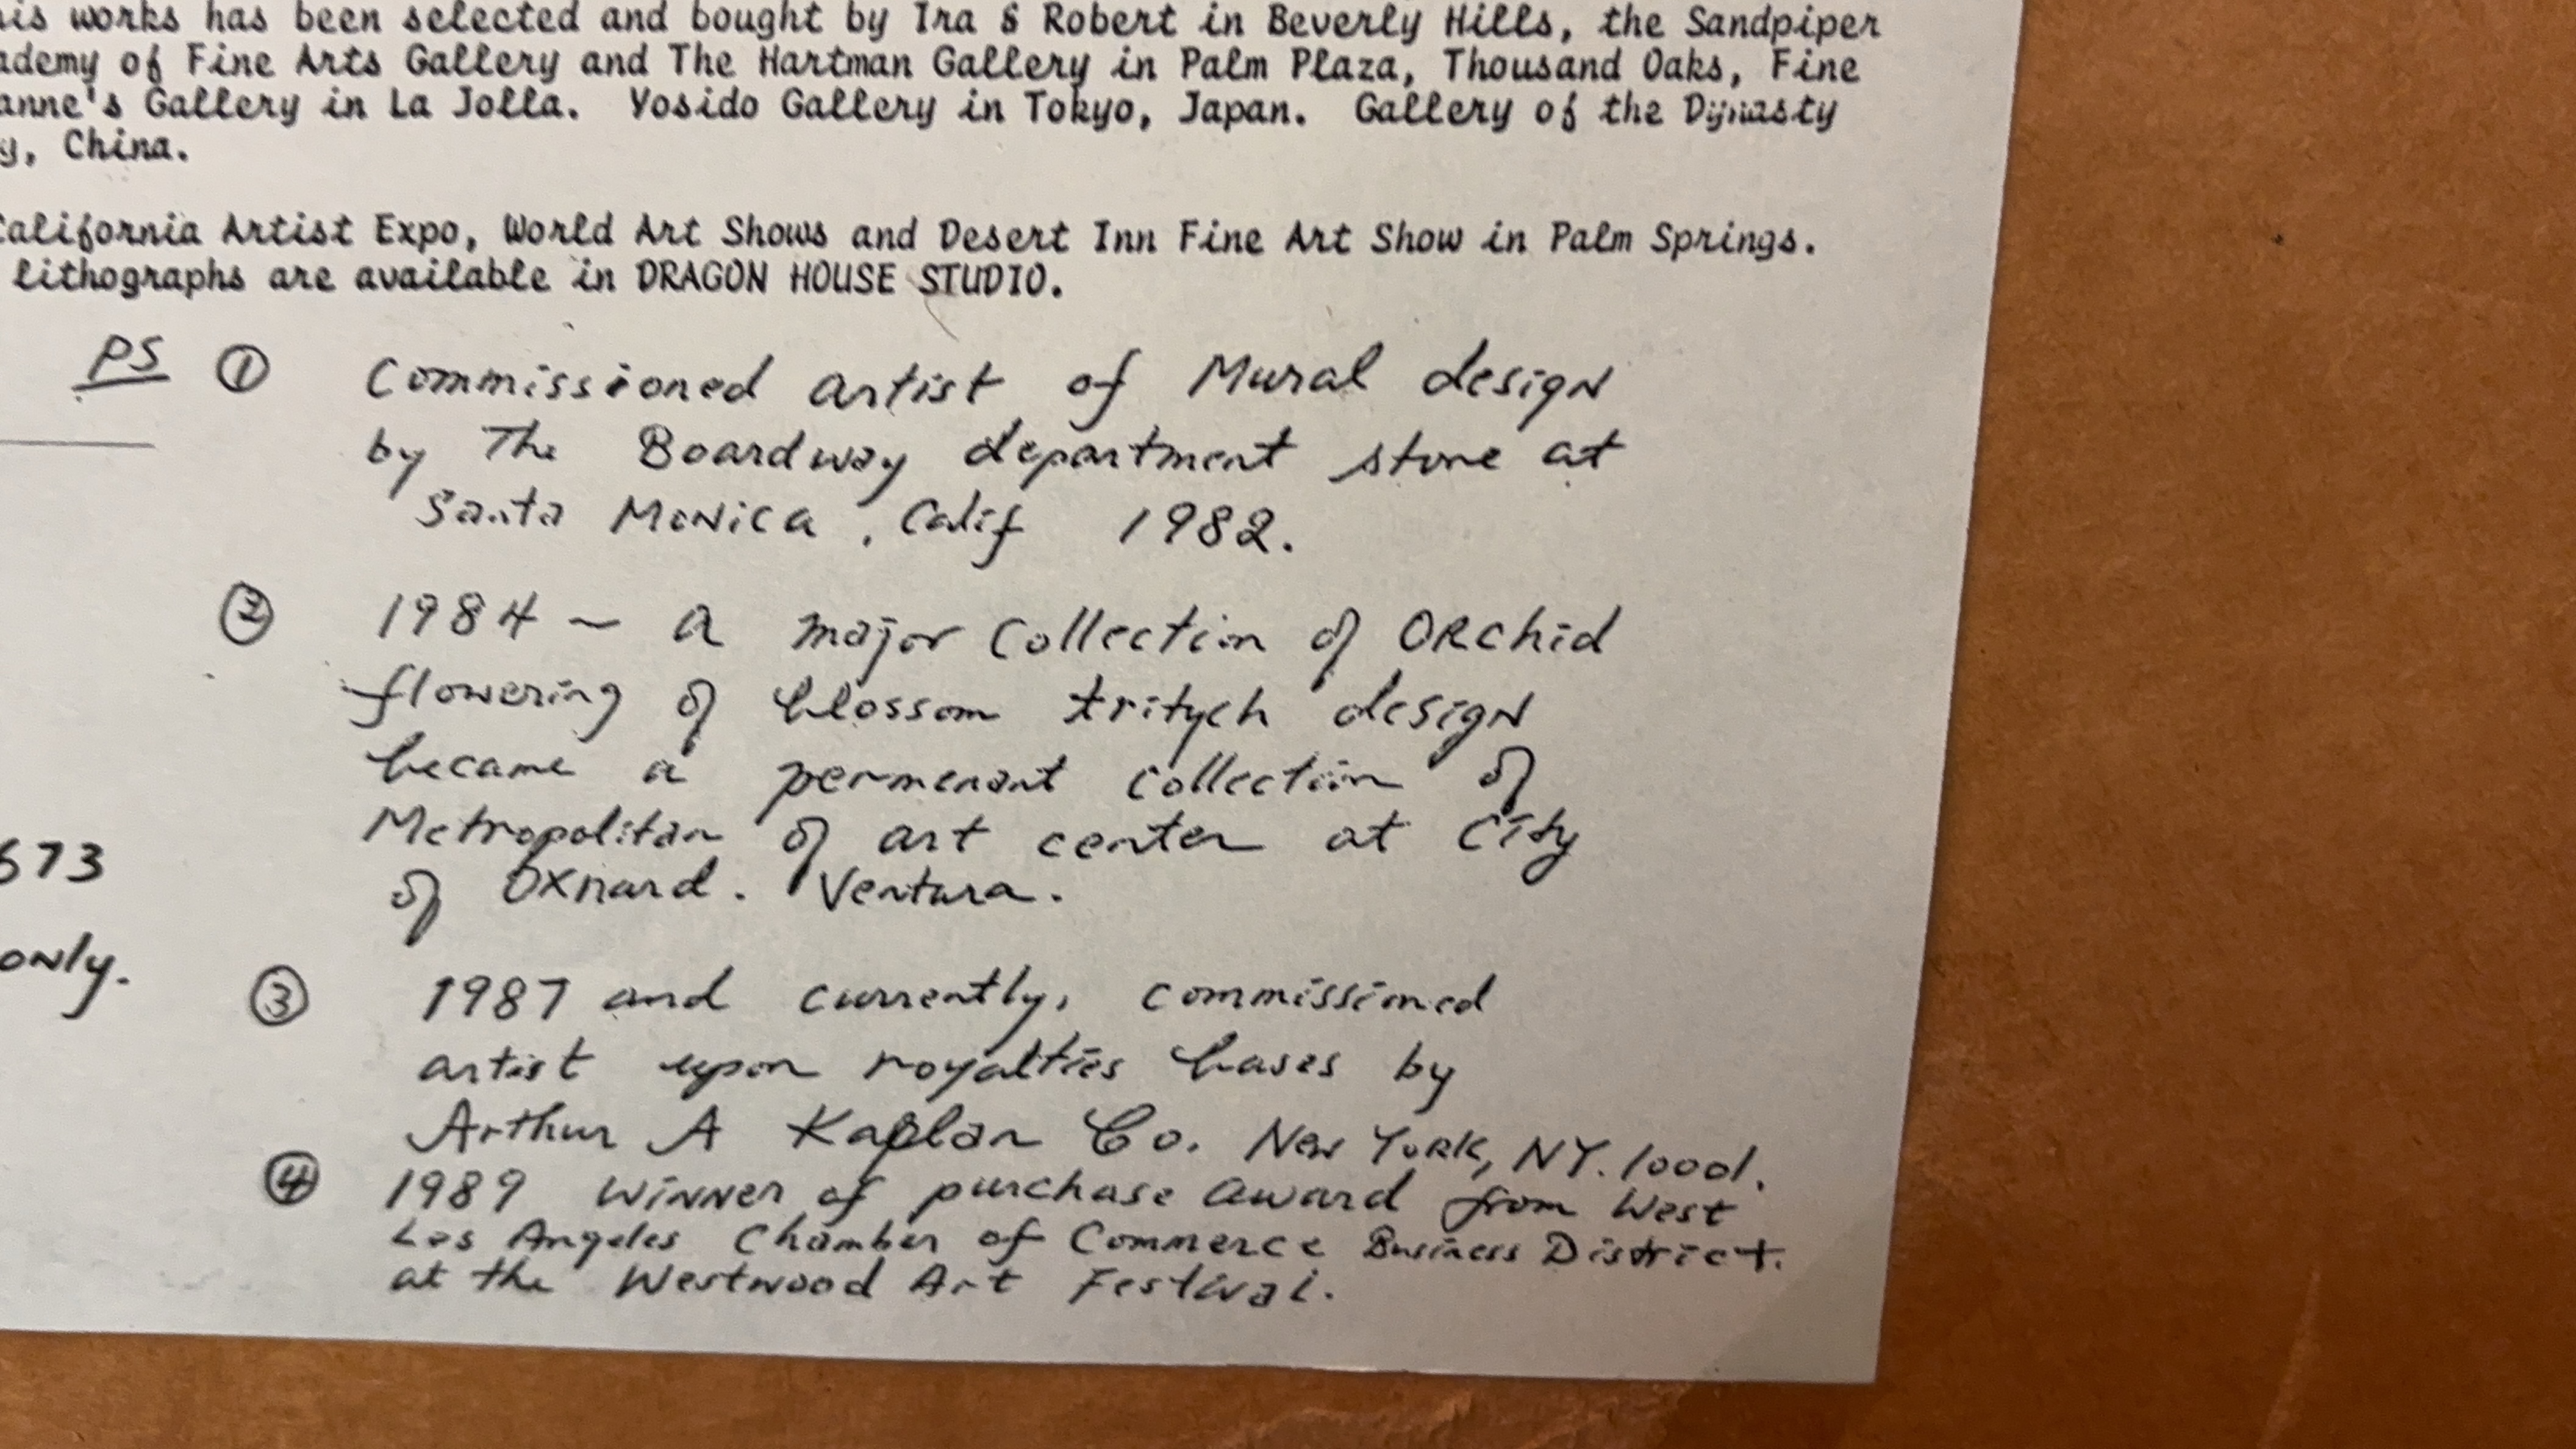 his works has been selected and bought by Ira & Robert in Beverly Hills, the Sandpiper
ademy of Fine Arts Gallery and The Hartman Gallery in Palm Plaza, Thousand Oaks, Fine
anne's Gallery in La Jolla. Yosido Gallery in Tokyo, Japan. Gallery of the Dynasty
y, China.
California Artist Expo, World Art Shows and Desert Inn Fine Art Show in Palm Springs.
lithographs are available in DRAGON HOUSE STUDIO.
PS ① Commissioned artist of Mural design
by The Boardway department store at
Santa Monica, Calif 1982.
② 1984 ~ a major Collection of ORchid
flowering of blossom tritych design
became a permenant collection of
Metropolitan of art center at City
of Oxnard. Ventura.
673
only.
③ 1987 and currently, commissioned
artist upon royalties bases by
Arthur A Kaplan Co. New York, NY. 10001.
④ 1989 Winner of purchase award from West
Los Angeles Chamber of Commerce Business District.
at the Westwood Art Festival.